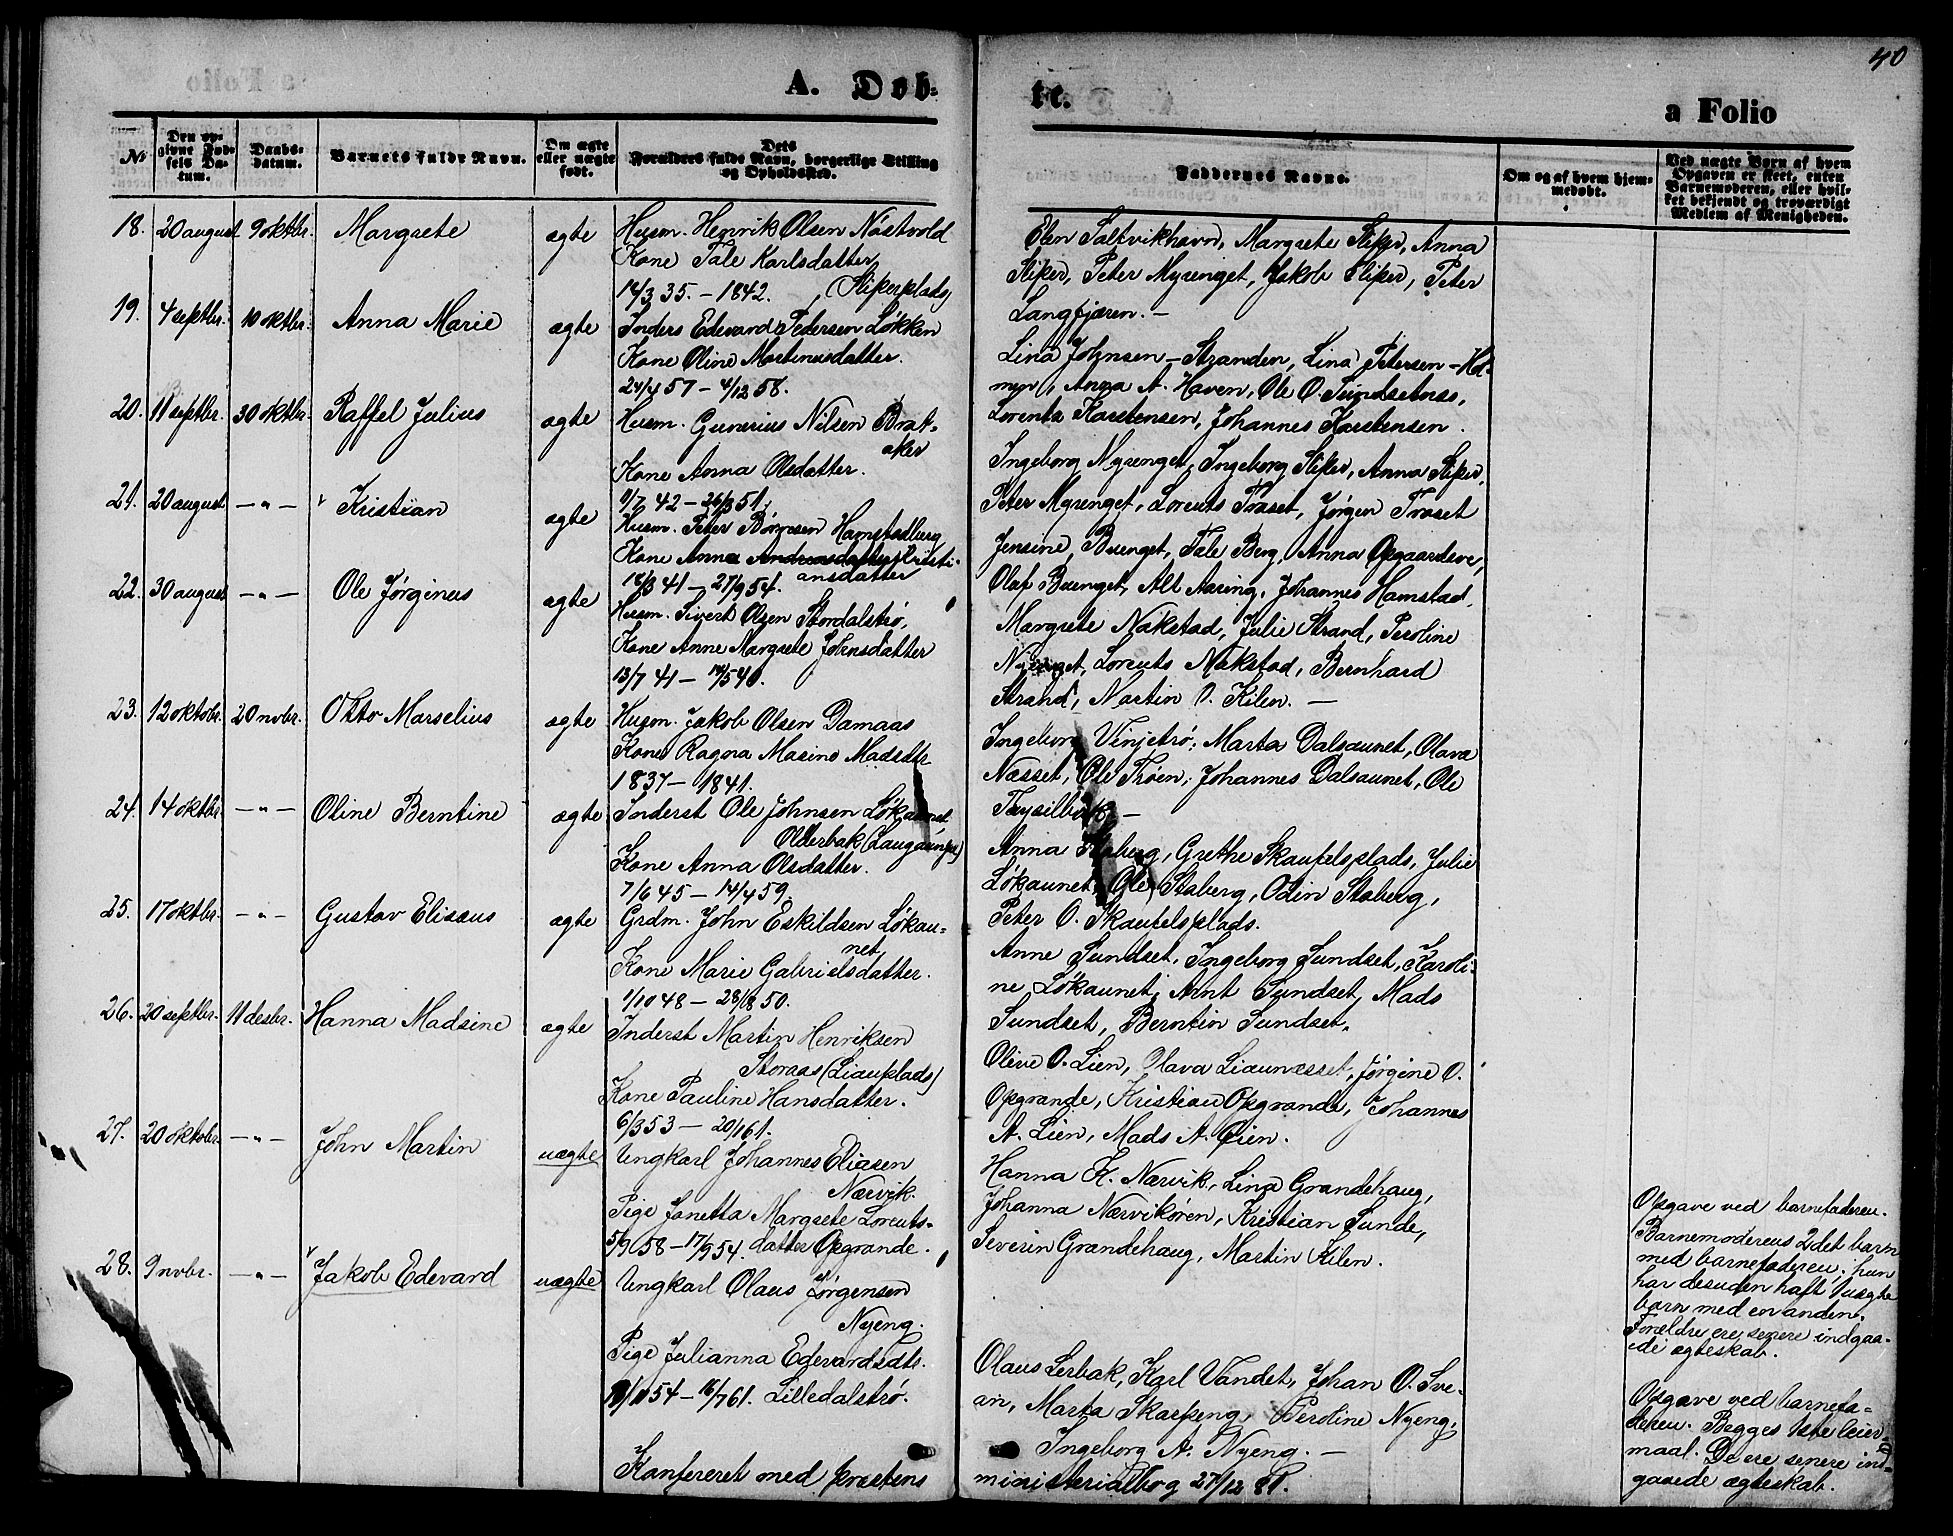 40
A. Døb-
te.
a Folio
No
Den op-
givne Fød-
sels Da-
tum.
Daabs-
datum.
Barnets fulde Navn.
Om ægte
eller uægte
født.
Dets
Forældres fulde Navn, borgerlige Stilling
og Opholdssted.
Faddernes Navne.
Om og af hvem hjem-
medøbt.
Ved uægte Børn af hvem
Opgaven er skeet, enten
Barnemoderen, eller hvil-
ket bekjendt og troværdigt
Medlem af Menigheden.
18. 20 august 9 oktbr. Margrete ægte Husm. Henrik Olsen Nöstvold
Kone Tale Karlsdatter
14/3 35. - 1842. (Sliperplads)
Elen Saltvikhavn, Margrete Sliper, Anna
Sliper, Peter Myrenget, Jakob Sliper, Peter
Langfjæren. -
19. 4 septbr. 10 oktbr. Anna Marie ægte Inders Edevard Pedersen Løkken
Kone Oline Martinusdatter.
24/4 57 - 4/12 58.
Lina Johnsen - Stranden, Lina Petersen - Hol-
myr, Anna A. Haven, Ole O. Sundsetnes,
Lorentz Karstensen, Johannes Karstensen.
20. 11 septbr. 30 oktbr. Paffel Julius ægte Husm. Gunerius Nilsen Brat-
aker
Kone Anna Olsdatter.
9/7 42 - 26/3 51.
Ingeborg Myrenget, Ingeborg Sliper, Anna Sliper,
Peter Myrenget, Lorents Træset, Jørgen Træset
21. 20 august - " - Kristian ægte Husm. Peter Børresen Hamstadberg
Kone Anna Andreasdatter Kristi-
ansdatter
18/3 41 - 27/9 54.
Jensine Buenget, Tale Berg, Anna Opgaardeve,
Olaf Buenget, Alt Aasing, Johannes Hamstad.
22. 30 august - " - Ole Jørginus ægte Husm. Sivert Olsen Stordalstrø,
Kone Anne Margrete Johnsdatter
13/7 41 - 14/5 40.
Margrete Nakstad, Julie Strand, Peroline
Nyenget, Lorents Nakstad, Bernhard
Strand, Martin O. Kilen. -
23. 12 oktobr. 20 novbr. Otto Marselius ægte Husm. Jakob Olsen Damaas
Kone Ragna Masine Madsdtr
1837 - 1841.
Ingeborg Vinjetrø, Marta Dalsaunet, Olava
Næsset, Ole Trøen, Johannes Dalsaunet, Ole
24. 14 oktbr. - " - Oline Berntine ægte Inderst Ole Johnsen Løkaunet
Olderbak
Kone Anna Olsdatter.
7/6 45 - 14/4 59.
Anna Staberg, Grethe Skaufelsplads, Julie
Løkaunet, Ole Staberg, Odin Staberg,
Peter O. Skaufelsplads.
25. 17 oktbr. - " - Gustav Elisæus ægte Grdm. John Eskildsen Løkau-
net
Kone Marie Gabrielsdatter.
1/10 48 - 28/8 50.
Anne Sundset, Ingeborg Sundset, Karoli-
ne Løkaunet, Arnt Sundset, Mads
Sundset, Berntin Sundset.
26. 20 septbr. 11 desbr. Hanna Madsine ægte Inderst Martin Henriksen
Storaas (Liauplads)
Kone Pauline Hansdatter.
6/3 53 - 20/1 61.
Olive O. Lien, Olava Liaunesset, Jørgine O.
Opgrande, Kristian Opgrande, Johannes
A. Lien, Mads A. Øien.
27. 20 oktobr. - " - John Martin uægte Ungkarl Johannes Eliasen
Nærvik.
Pige Janetta Margrete Lorents-
5/9 58 - 17/9 54. datter Opgrande.
Hanna E. Nærvik, Lina Grandehaug,
Johanna Nærvikøren, Kristian Sunde,
Severin Grandehaug, Martin Kilen.
Opgave ved barnefaderen.
Barnemoderens 2det barn
med barnefaderen; hun
har desuden haft 1 uægte
barn med en anden.
Forældre ere senere indgaa-
ede ægteskab.
28. 9 novbr. - " - Jakob Edevard uægte Ungkarl Olaus Jørgensen
Nyeng.
Pige Julianna Edevardsdtr.
11/11 54 - 16/7 61. Lilledalstrø.
Olaus Lerbak, Karl Vandet, Johan O. Sve-
an, Marta Skarpeng, Peroline Nyeng,
Ingeborg A. Nyeng. -
Opgave ved barnefa-
deren. Begges 1ste leier-
maal. De ere senere ind-
gaaede ægteskab.
Konfereret med præstens
ministerialbog 27/12 81.